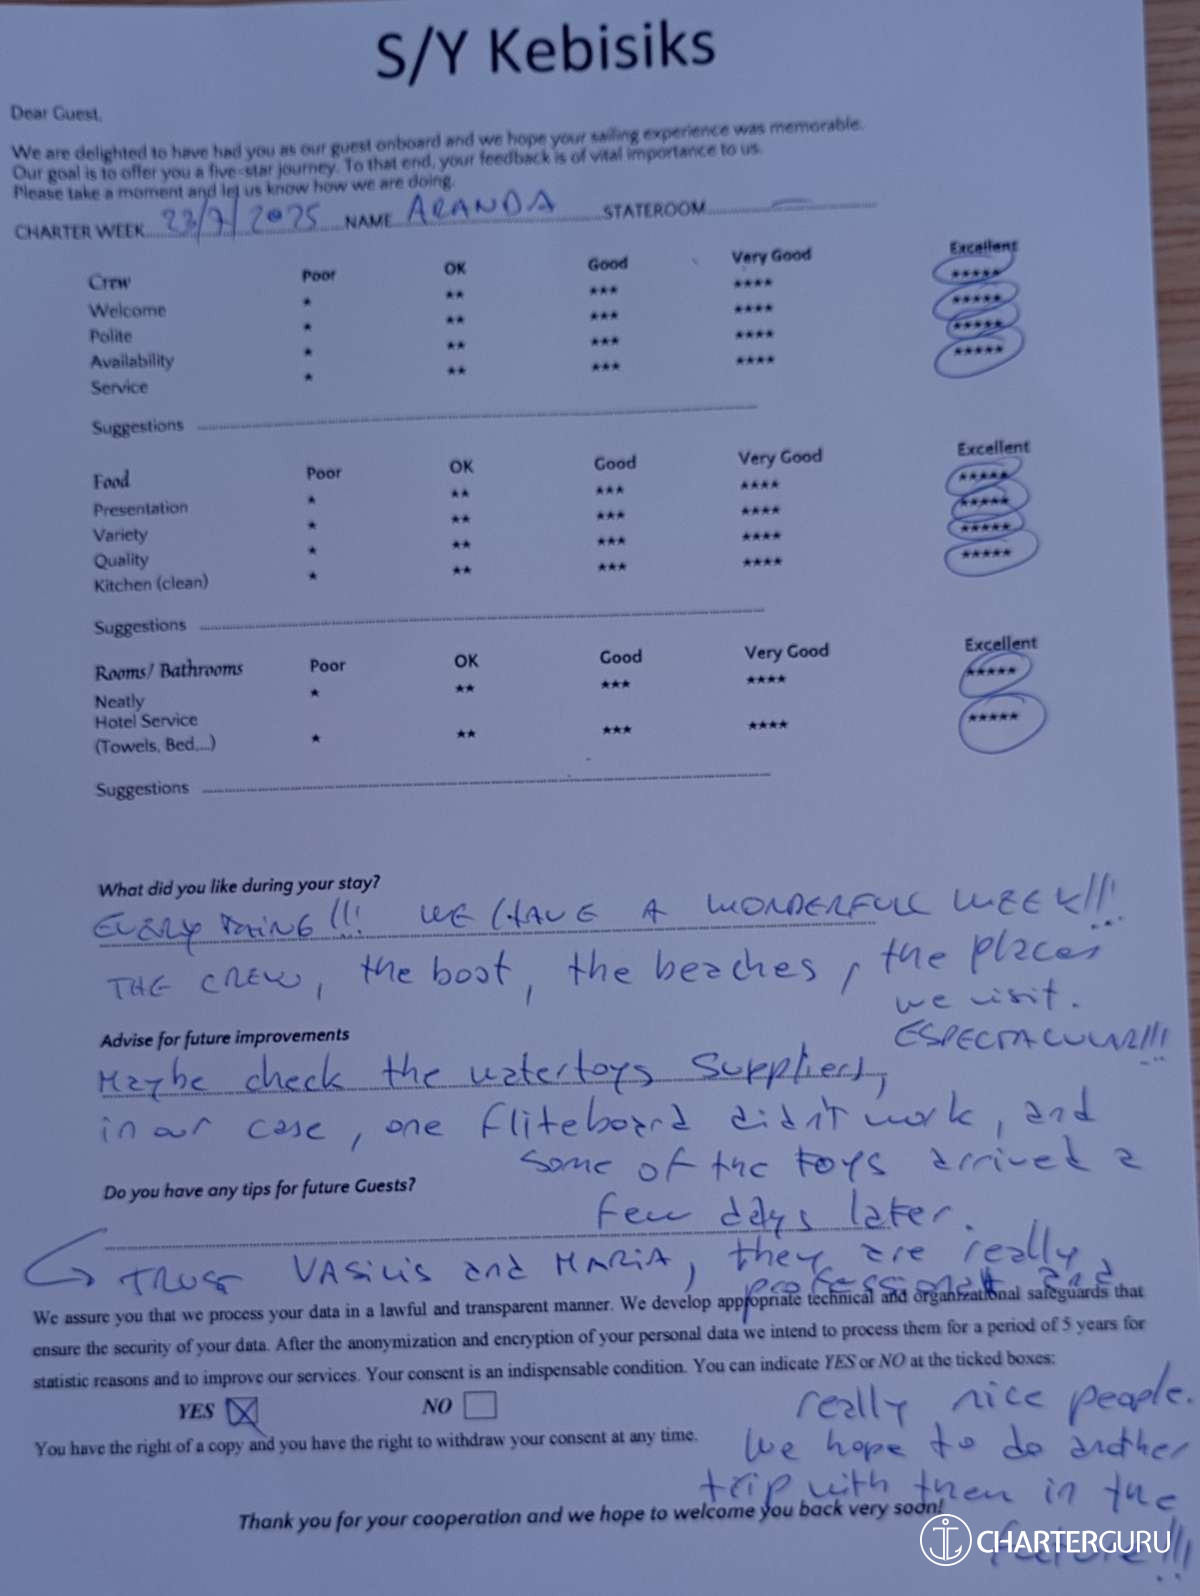 S/Y Kebisiks
Dear Guest,
We are delighted to have had you as our guest onboard and we hope your sailing experience was memorable.
Our goal is to offer you a five-star journey. To that end, your feedback is of vital importance to us.
Please take a moment and let us know how we are doing.
CHARTER WEEK 23/7/2025 NAME ARANDA STATEROOM —
Crew Poor OK Good Very Good Excellent
Welcome * ** *** **** *****
Polite * ** *** **** *****
Availability * ** *** **** *****
Service * ** *** **** *****
Suggestions
Food Poor OK Good Very Good Excellent
Presentation * ** *** **** *****
Variety * ** *** **** *****
Quality * ** *** **** *****
Kitchen (clean) * ** *** **** *****
Suggestions
Rooms/ Bathrooms Poor OK Good Very Good Excellent
Neatly * ** *** **** *****
Hotel Service
(Towels, Bed,...) * ** *** **** *****
Suggestions
What did you like during your stay?
EVERYTHING!!! WE HAVE A WONDERFULL WEEK!!!
THE CREW, the boat, the beaches, the places
we visit.
ESPECTACULAR!!!
Advise for future improvements
Maybe check the watertoys suppliers,
in our case, one fliteboard didn't work, and
some of the toys arrived a
few days later.
Do you have any tips for future Guests?
TRUST VASILIS and MARIA, they are really
professional and
We assure you that we process your data in a lawful and transparent manner. We develop appropriate technical and organizational safeguards that
ensure the security of your data. After the anonymization and encryption of your personal data we intend to process them for a period of 5 years for
statistic reasons and to improve our services. Your consent is an indispensable condition. You can indicate YES or NO at the ticked boxes:
YES NO
really nice people.
You have the right of a copy and you have the right to withdraw your consent at any time.
We hope to do another
trip with them in the
Thank you for your cooperation and we hope to welcome you back very soon!
future!!!
CHARTERGURU